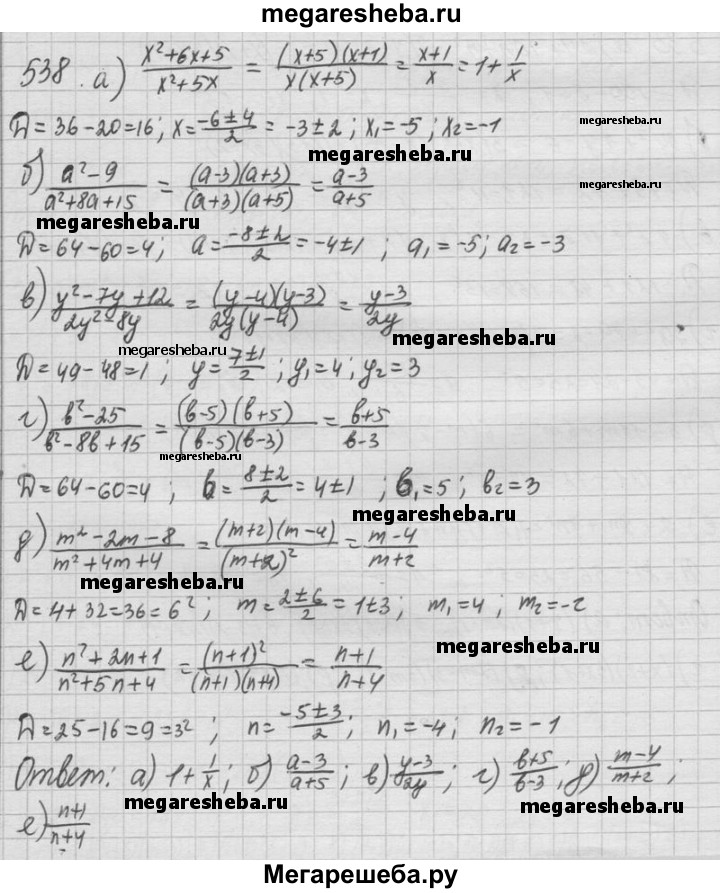 megaresheba.ru
538. а) (x²+6x+5)/(x²+5x) = ((x+5)(x+1))/(x(x+5)) = (x+1)/x = 1+1/x
D=36-20=16; x=(-6±4)/2 = -3±2; x₁=-5; x₂=-1
megaresheba.ru
б) (a²-9)/(a²+8a+15) = ((a-3)(a+3))/((a+3)(a+5)) = (a-3)/(a+5)
megaresheba.ru
megaresheba.ru
D=64-60=4; a=(-8±2)/2=-4±1; a₁=-5; a₂=-3
в) (y²-7y+12)/(2y²-8y) = ((y-4)(y-3))/(2y(y-4)) = (y-3)/2y
megaresheba.ru
megaresheba.ru
D=49-48=1; y=(7±1)/2; y₁=4; y₂=3
г) (b²-25)/(b²-8b+15) = ((b-5)(b+5))/((b-5)(b-3)) = (b+5)/(b-3)
megaresheba.ru
D=64-60=4; b=(8±2)/2=4±1; b₁=5; b₂=3
megaresheba.ru
д) (m²-2m-8)/(m²+4m+4) = ((m+2)(m-4))/(m+2)² = (m-4)/(m+2)
megaresheba.ru
D=4+32=36=6²; m=(2±6)/2=1±3; m₁=4; m₂=-2
megaresheba.ru
е) (n²+2n+1)/(n²+5n+4) = (n+1)²/((n+1)(n+4)) = (n+1)/(n+4)
D=25-16=9=3²; n=(-5±3)/2; n₁=-4; n₂=-1
Ответ: а) 1+1/x; б) (a-3)/(a+5); в) (y-3)/2y; г) (b+5)/(b-3); д) (m-4)/(m+2);
megaresheba.ru
megaresheba.ru
е) (n+1)/(n+4)
Мегарешеба.ру